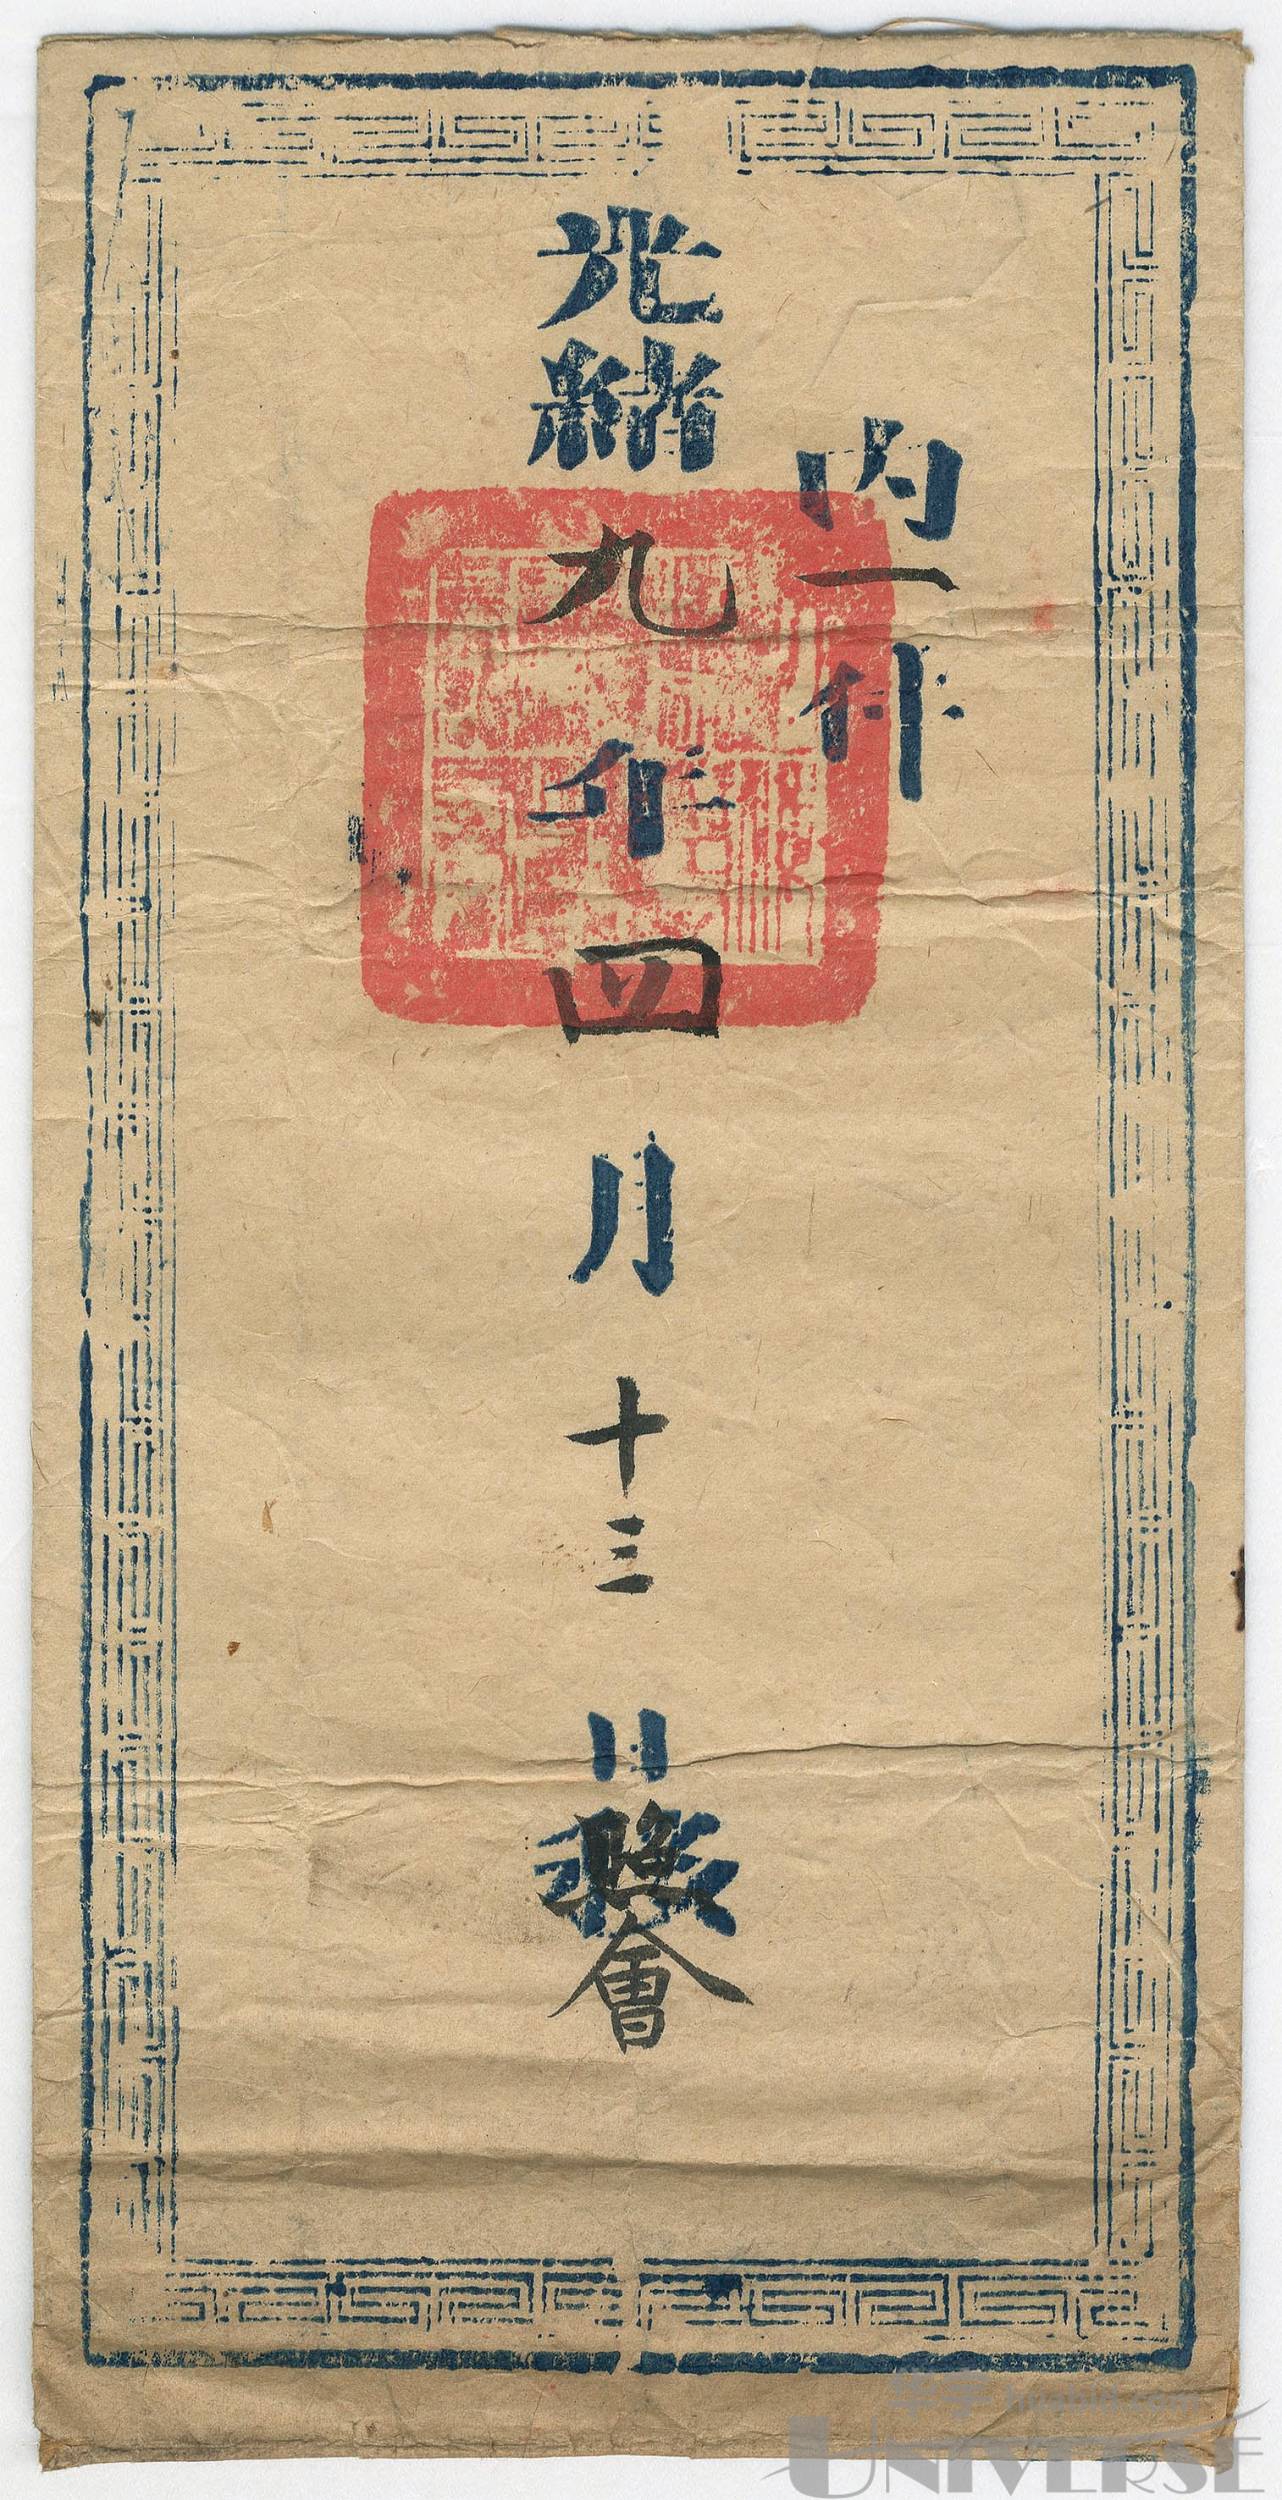 內一件
光緒九年四月十三日照會
華宇 huabid.com
UNIVERSE